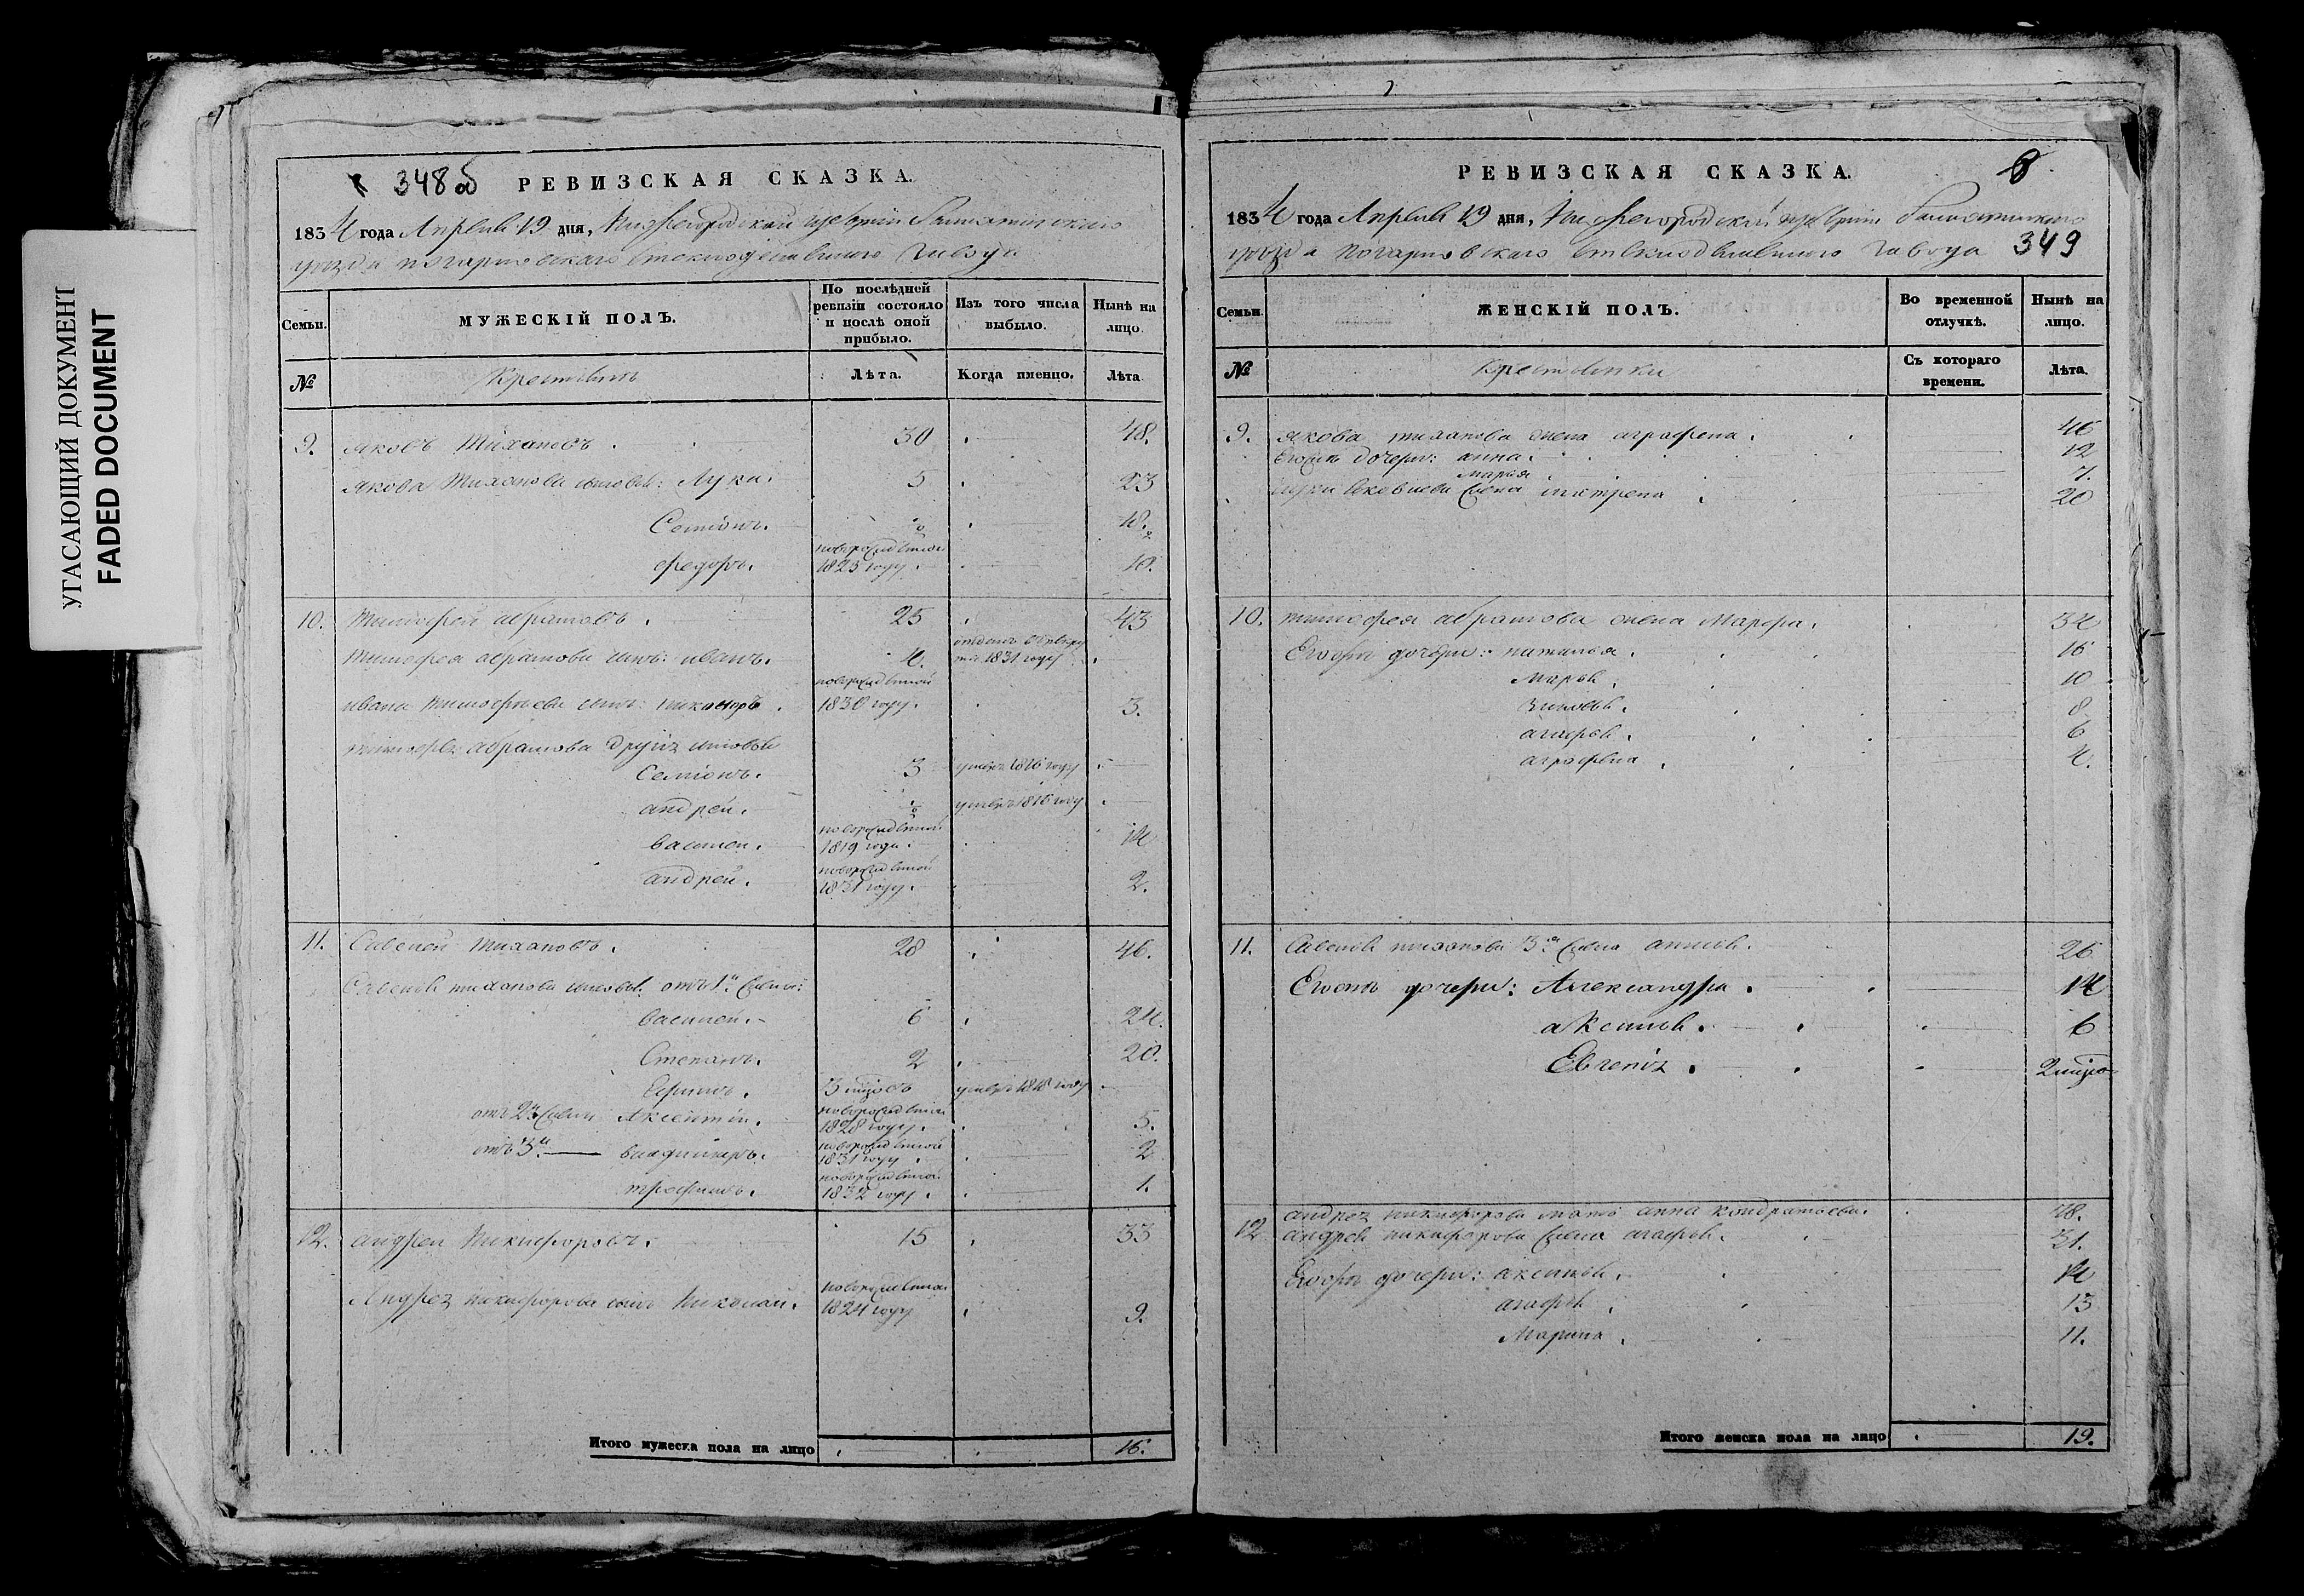 УГАСАЮЩИЙ ДОКУМЕНТ
FADED DOCUMENT
348 об
РЕВИЗСКАЯ СКАЗКА.
1834 года Апреля 19 дня, Нижегородской губернии
уезда стеклоделаемого завода
Семьи.
МУЖЕСКІЙ ПОЛЪ.
По послѣдней ревизіи состояло и послѣ оной прибыло.
Изъ того числа выбыло.
Нынѣ на лицо.
№
Крестьянъ
Лѣта.
Когда именно.
Лѣта
9. Яковъ Тихановъ. 30 48.
Якова Тиханова сыновья: Лука. 5 23
Семіонъ. 18.
Федоръ. новорожденной 1823 году. 10.
10. Тимофей Абрамовъ. 25 43
Тимофея Абрамова сынъ: Иванъ. 4. отданъ въ рекруты 1831 году
Ивана Тимофеева сынъ: Никаноръ. новорожденной 1830 году. 3.
Тимофея Абрамова другіе сыновья
Семіонъ. 3 умеръ 1816 году
Андрей. умеръ 1816 году
Василей. новорожденной 1819 года. 14
Андрей. новорожденной 1831 году. 2.
11. Савелей Тихановъ. 28 46.
Савелья Тиханова сыновья: отъ 1й жены:
Василей. 6 24.
Степанъ. 2 20.
Ефимъ. умеръ 1818 году
отъ 2й жены Аксентій. новорожденной 1828 году. 5.
отъ 3й — Владимиръ. новорожденной 1831 году. 2
Трофимъ. новорожденной 1832 году. 1.
12. Андрей Никифоровъ. 15 33
Андрея Никифорова сынъ Николай. новорожденной 1824 году 9.
Итого мужеска пола на лицо 16.
РЕВИЗСКАЯ СКАЗКА.
1834 года Апреля 19 дня, Нижегородской губернии
уезда стеклоделаемого завода 349
Семьи.
ЖЕНСКІЙ ПОЛЪ.
Во временной отлучкѣ.
Нынѣ на лицо.
№
Крестьянки
Съ котораго времени.
Лѣта
9. Якова Тиханова жена Аграфена. 46
Егожъ дочери: Анна. 12
Марья 7.
Луки Яковлева жена 20
10. Тимофея Абрамова жена Марфа. 34
Егожъ дочери: Наталья. 16
Марья. 10
Зиновья. 8
Агафья. 6
Аграфена. 4.
11. Савелья Тиханова 3я жена Анисья. 26
Егожъ дочери: Александра. 14
Аксинья. 6
Евгенія. 2
12 Андрея Никифорова мать Анна Кондратьева. 48.
Андрея Никифорова жена Агафья. 31.
Егожъ дочери: Аксинья. 14
Агафья. 13
Марина. 11.
Итого женска пола на лицо 19.